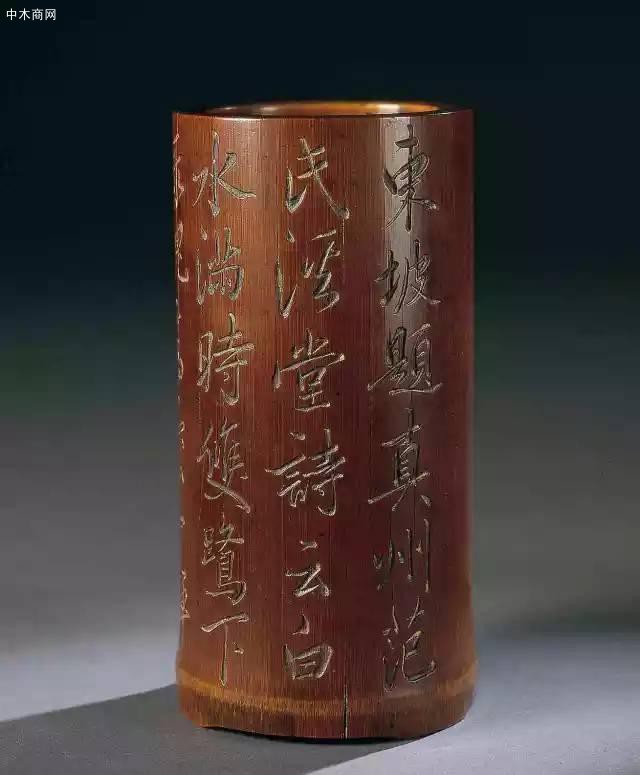 中木商网
東坡題真州范
氏溪堂詩云白
水满時雙鷺下